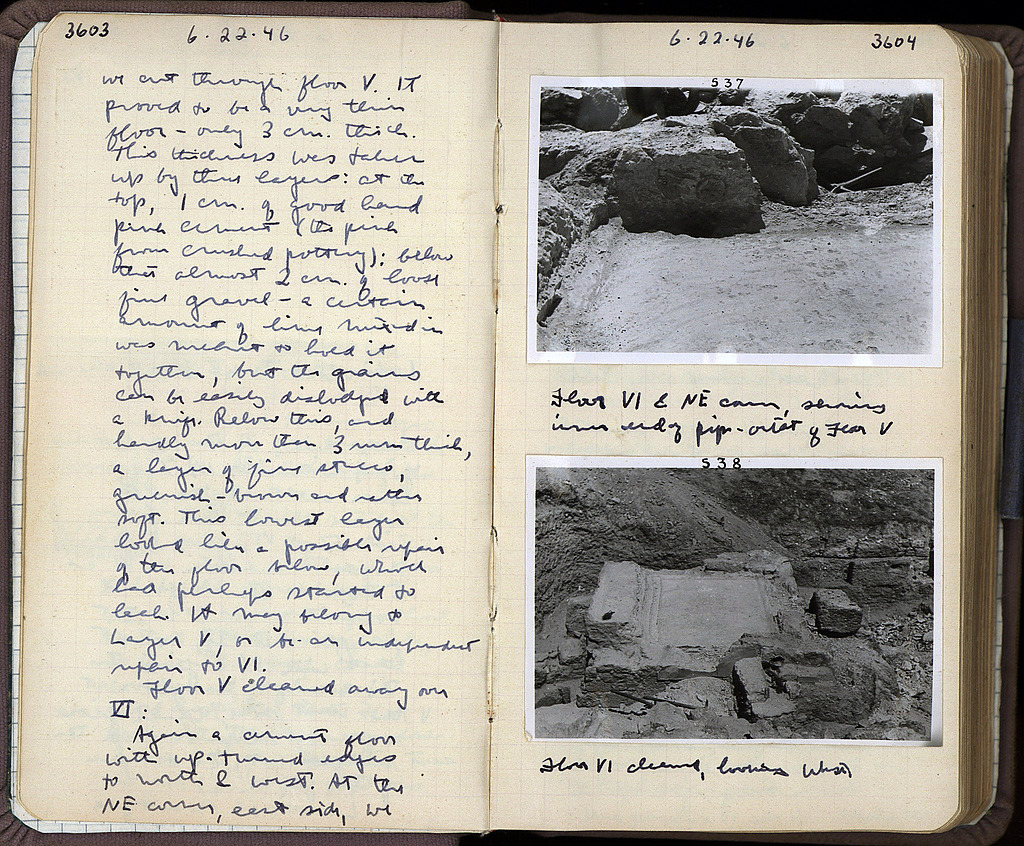 3603
6·22·46
we cut through floor V. It
proved to be a very thin
floor – only 3 cm. thick.
This thickness was taken
up by three layers: at the
top, 1 cm. of good hard
pink cement (the pink
from crushed pottery); below
that almost 2 cm. of loose
fine gravel – a certain
amount of lime mixed in
was meant to hold it
together, but the grains
can be easily dislodged with
a knife. Below this, and
hardly more than 3 mm thick,
a layer of fine stucco,
greenish-brown and rather
soft. This lowest layer
looked like a possible repair
of the floor below, which
had perhaps started to
leak. It may belong to
Layer V, or be an independent
repair to VI.
Floor V cleared away over
VI:
Again a cement floor
with up-turned edges
to north & west. At the
NE corner, east side, we
6·22·46
3604
S37
Floor VI & NE corner, showing
inner end of pipe-outlet of Floor V
S38
Floor VI cleared, looking West